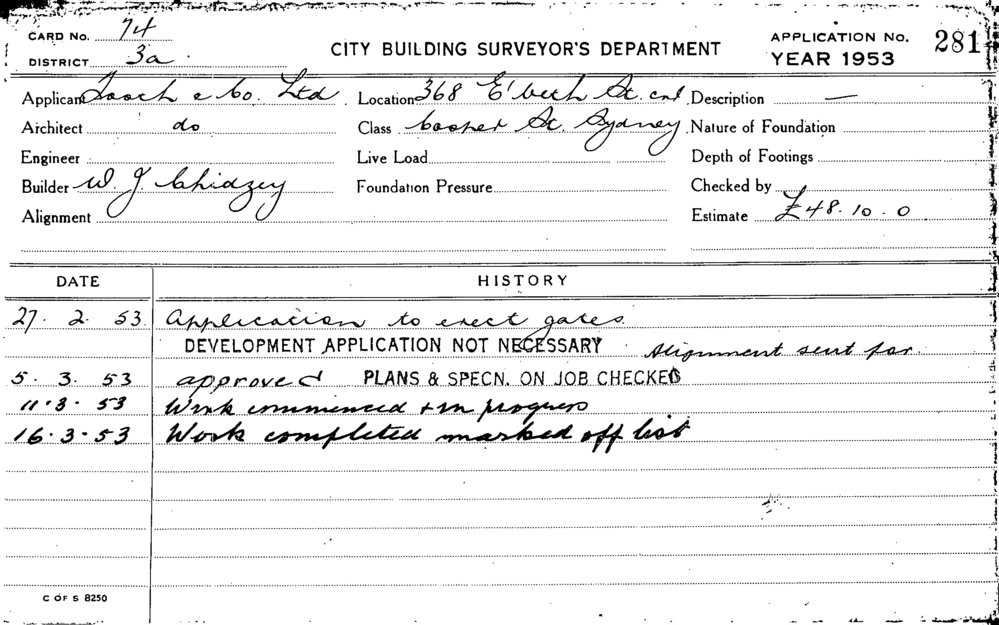 CARD No. 74
DISTRICT 3a
CITY BUILDING SURVEYOR'S DEPARTMENT
APPLICATION No. 281
YEAR 1953
Applicant Tooth & Co. Ltd Location 368 E'beth St. cnr Description —
Architect do Class Cooper St. Sydney Nature of Foundation
Engineer Live Load Depth of Footings
Builder W. J. Chidzey Foundation Pressure Checked by
Alignment Estimate £48.10.0
DATE HISTORY
27. 2. 53 Application to erect gates.
DEVELOPMENT APPLICATION NOT NECESSARY Alignment sent for.
5. 3. 53 approved PLANS & SPECN. ON JOB CHECKED
11.3.53 Work commenced + in progress
16.3.53 Work completed marked off list
C OF S 8250